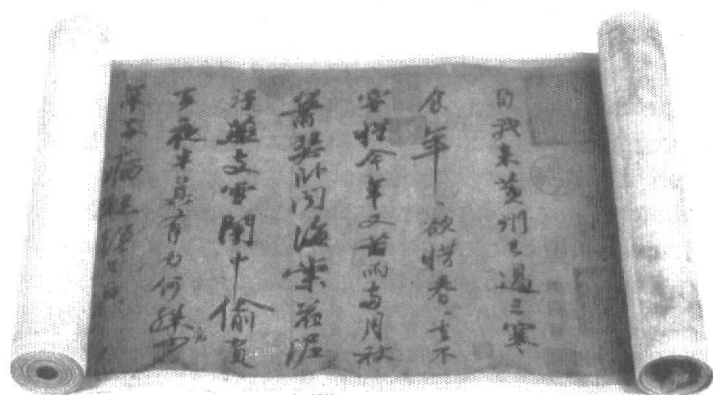 自我来黄州已過三寒
食年〻欲惜春〻去不
容惜今年又苦雨兩月秋
蕭瑟卧聞海棠花泥
汙燕支雪闇中偷負
去夜半真有力何殊少
年子病起頭已白